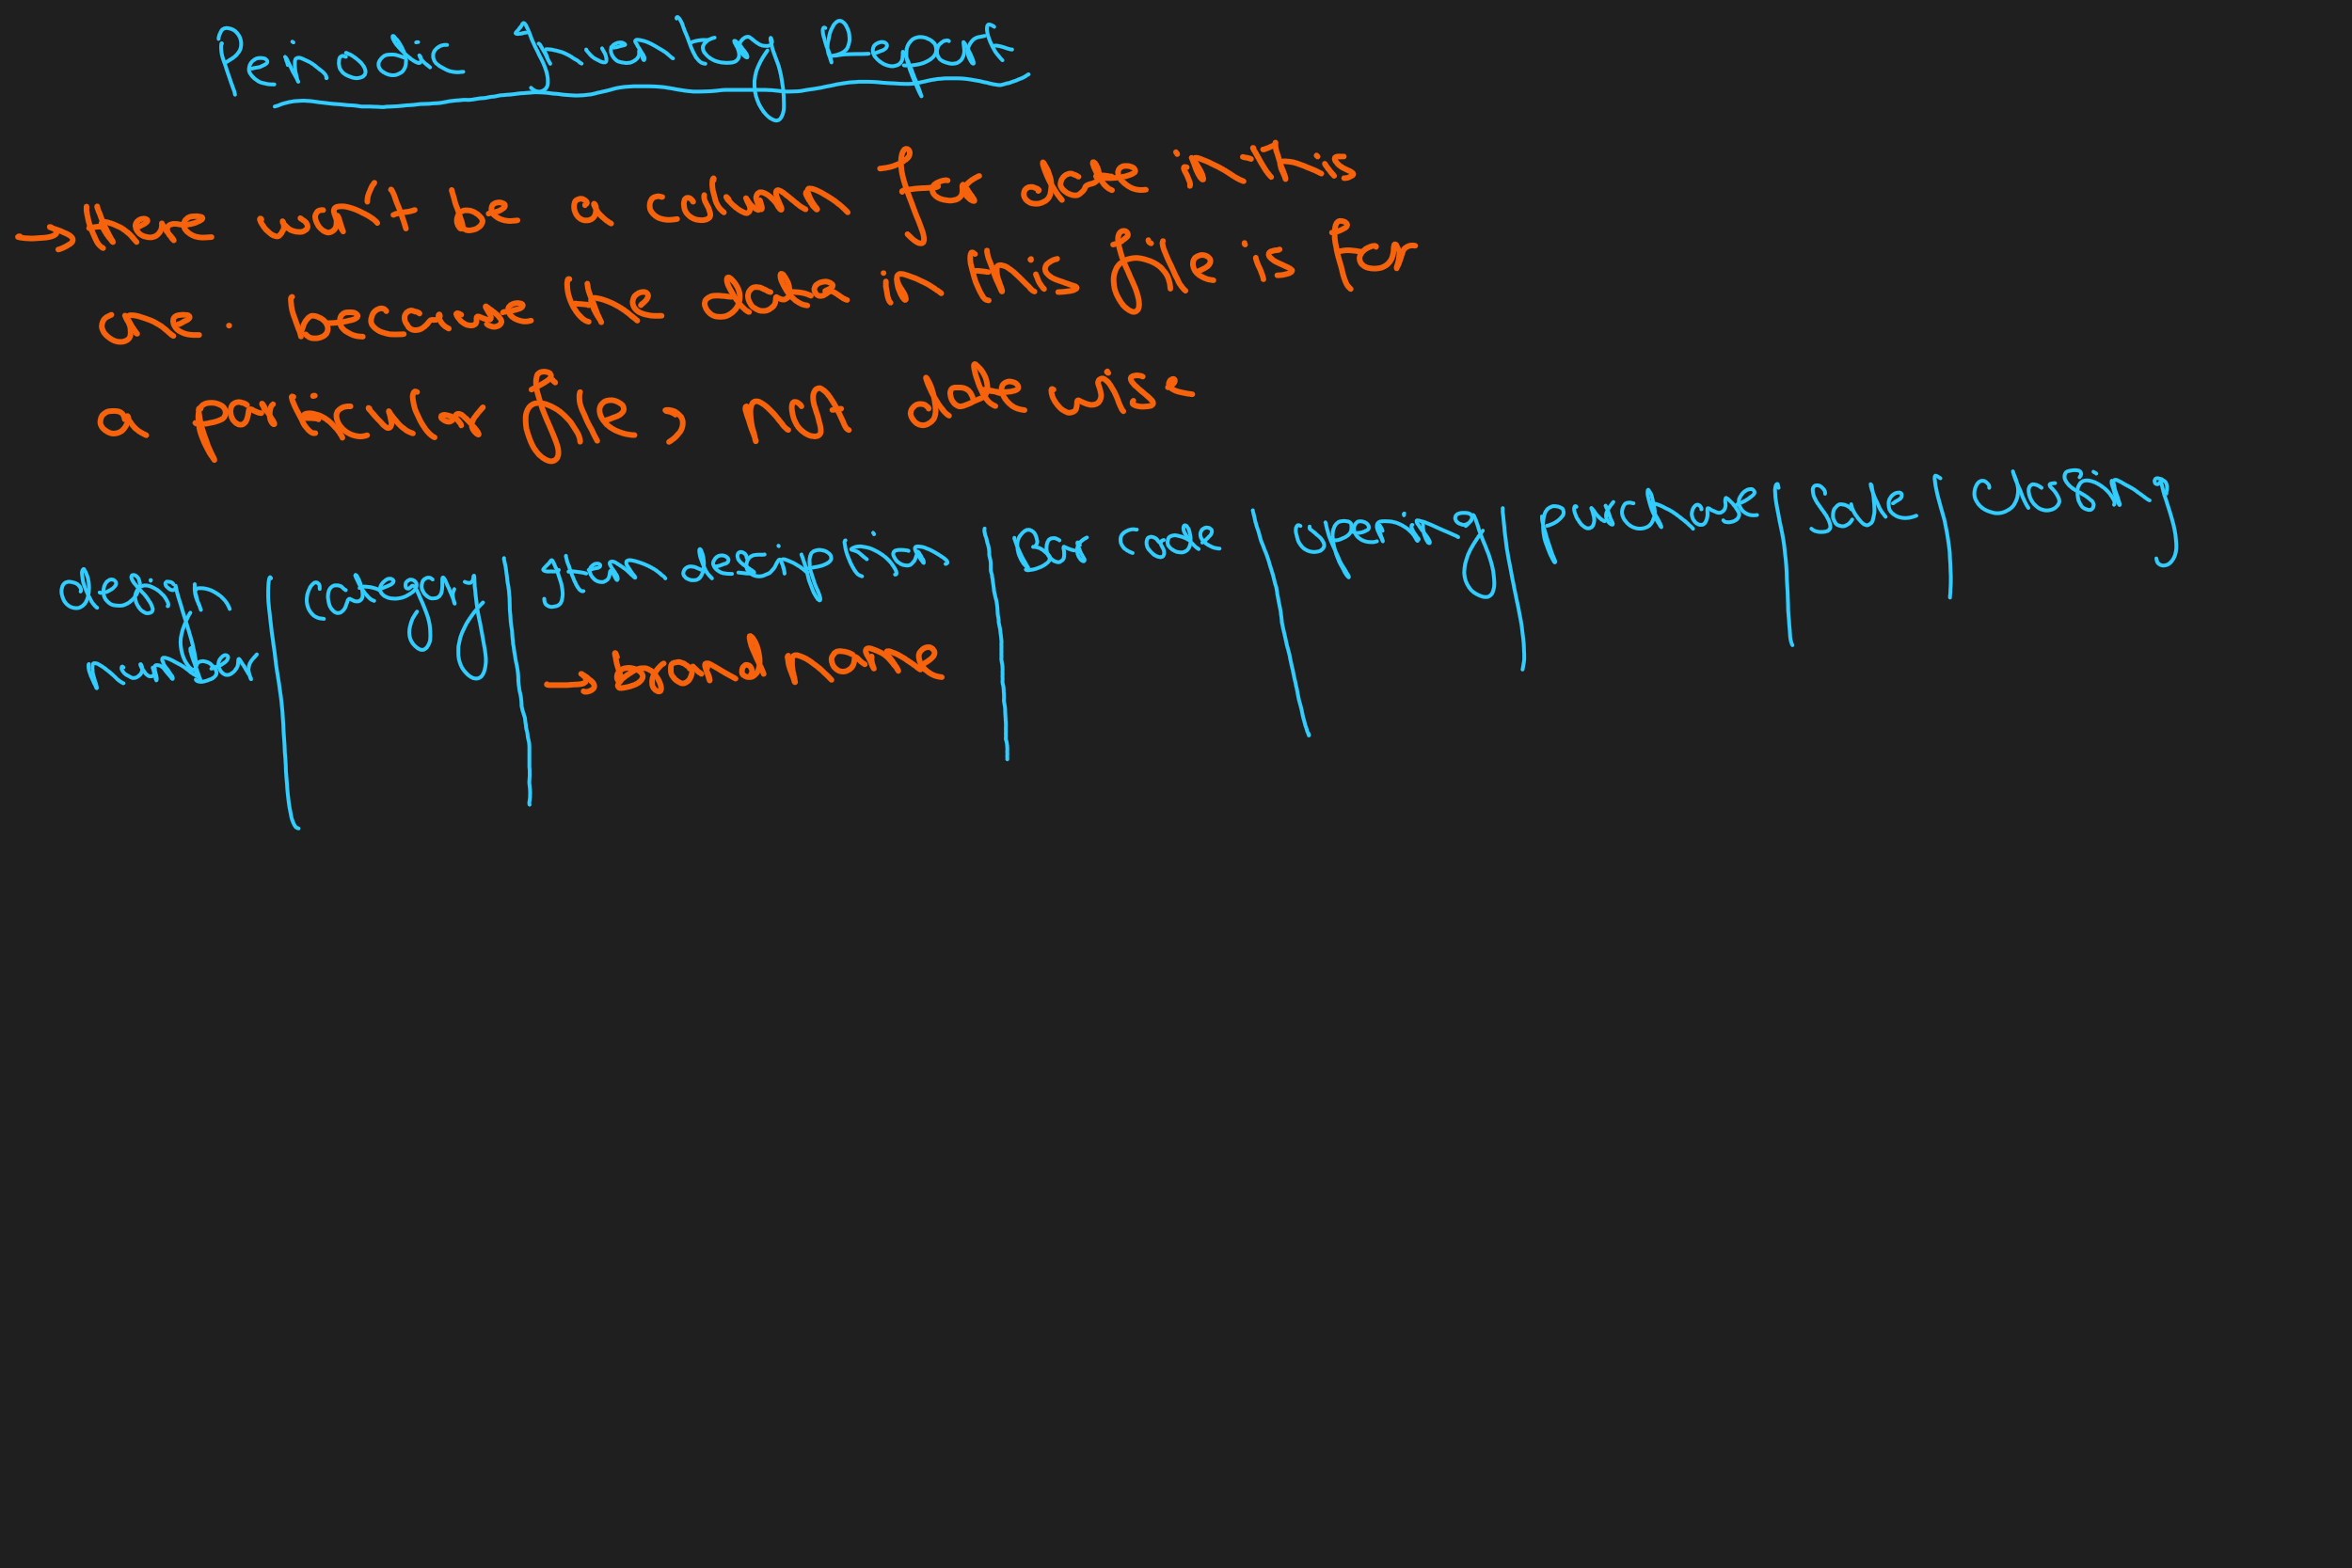 Perinodic Inventory Report
→ there won't be an column for date in this
one. because the date in this file is for
a perticular file, not date wise.
design number | Category | Item description | Bar code | Opening | purchase | Sale | Closing
→ brand name